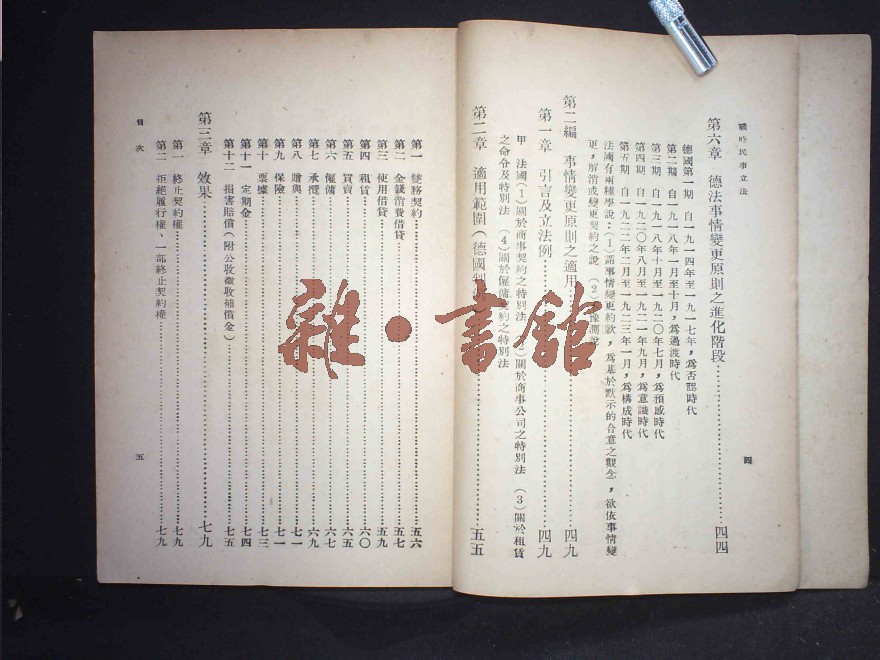 戰時民事立法
四
第六章 德法事情變更原則之進化階段 四四
德國第一期 自一九一四年至一九一七年,爲否認時代
第二期 自一九一八年一月至十月,爲過渡時代
第三期 自一九一八年十月至一九二〇年七月,爲預感時代
第四期 自一九二〇年八月至一九二一年九月,爲意識時代
第五期 自一九二二年二月至一九二三年一月,爲構成時代
法國有兩種學說:(1)謂事情變更約款,爲基於默示的合意之觀念,欲依事情變
更,解消或變更契約之說 (2)豫測說
第二編 事情變更原則之適用 四九
第一章 引言及立法例 四九
甲 法國(1)關於商事契約之特別法 (2)關於商事公司之特別法 (3)關於租賃
之命令及特別法 (4)關於僱傭契約之特別法
第二章 適用範圍(德國判 五五
第一 雙務契約 五六
第二 金錢消費借貸 五七
第三 使用借貸 五九
第四 租賃 六〇
第五 買賣 六五
第六 僱傭 六七
第七 承攬 六九
第八 贈與 七一
第九 保險 七一
第十 票據 七三
第十一 定期金 七四
第十二 損害賠償(附公收徵收補償金) 七五
第三章 效果 七九
第一 終止契約權 七九
第二 拒絕履行權、一部終止契約權 七九
目次
五
雜·書館